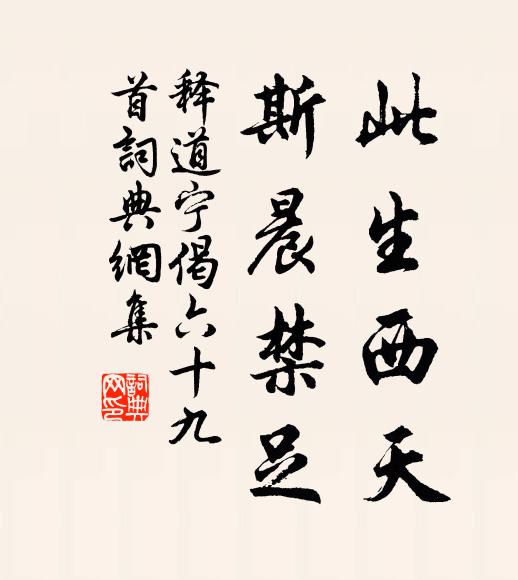 此生西天
斯晨禁足
释道宁偈六十九
首詞典網集
詞典
网印